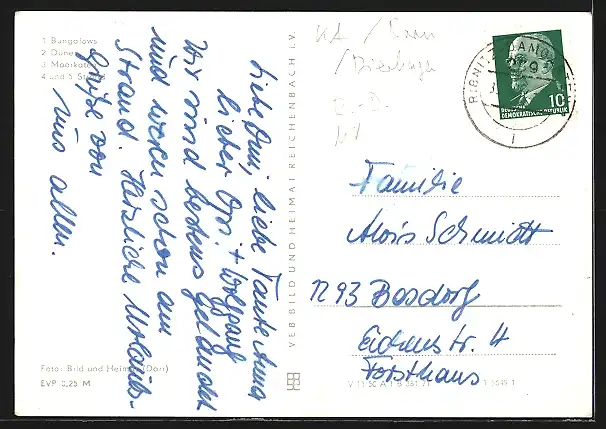 1 Bungalows
2 Düne
3 Maerkaten
4 und 5 Strand
Liebe Omi, liebe Tante Anna
lieber Opi + Wolfgang
Wir sind bestens gelandet
und waren schon am
Strand. Herzliche Urlaubs-
grüße von
uns allen.
Foto: Bild und Heimat (Darr)
EVP 0,25 M
VEB BILD UND HEIMAT REICHENBACH i. V.
RIBNITZ-DAMG
10
DEUTSCHE
DEMOKRATISCHE REPUBLIK
Familie
Alois Schmidt
1293 Basdorf
Eichenstr. 4
Forsthaus